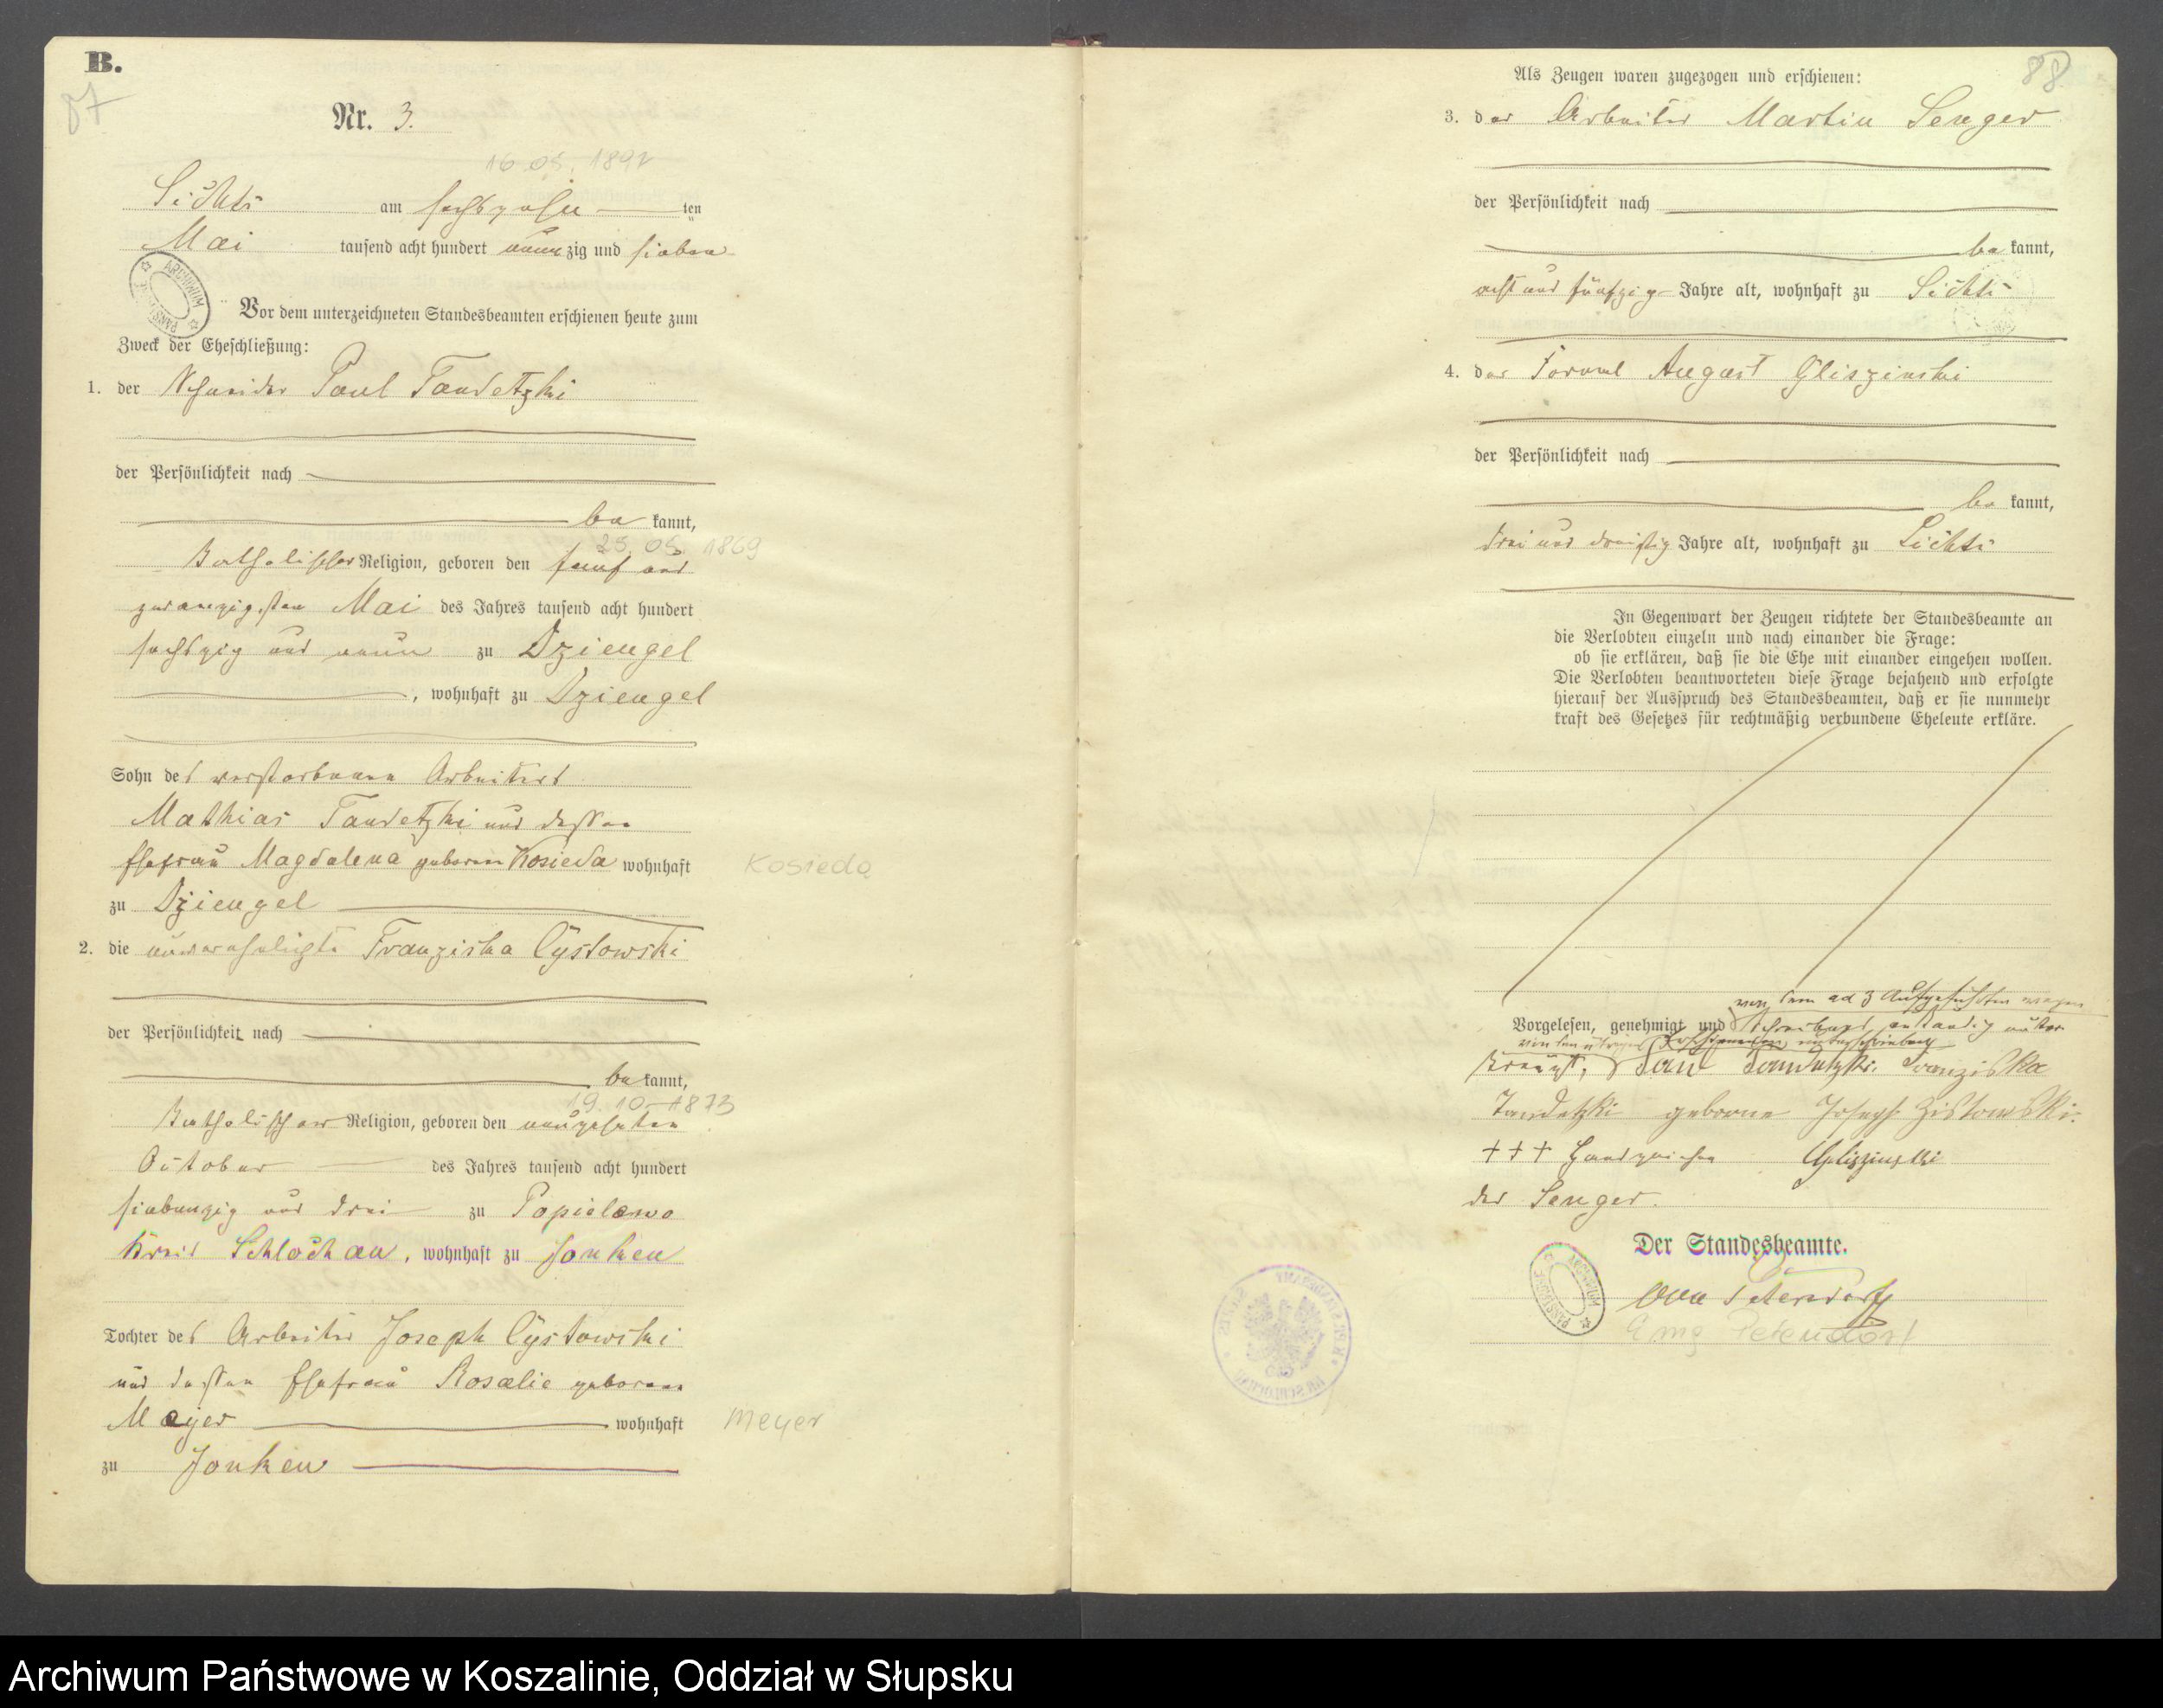 B.
87
Nr. 3.
16.05.1897
Sichts am sechszehn ten
Mai tausend acht hundert neun zig und sieben
Vor dem unterzeichneten Standesbeamten erschienen heute zum
Zweck der Eheschließung:
1. der Schneider Paul Tandetzki
der Persönlichkeit nach
be kannt,
25.05.1869
Katholischer Religion, geboren den fünf und
zwanzigsten Mai des Jahres tausend acht hundert
sechszig und neun zu Dziengel
, wohnhaft zu Dziengel
Sohn des verstorbenen Arbeiters
Mathias Tandetzki und dessen
Ehefrau Magdalena geborene Kosieda wohnhaft
Kosieda
zu Dziengel
2. die unverehelichte Franziska Cystowski
der Persönlichkeit nach
be kannt,
19.10.1873
Katholischer Religion, geboren den neunzehnten
October des Jahres tausend acht hundert
siebenzig und drei zu Popielewo
Kreis Schlochau, wohnhaft zu Jonken
Tochter des Arbeiter Joseph Cystowski
und dessen Ehefrau Rosalie geborene
Meyer wohnhaft
Meyer
zu Jonken
88
Als Zeugen waren zugezogen und erschienen:
3. der Arbeiter Martin Senger
der Persönlichkeit nach
be kannt,
acht und fünfzig Jahre alt, wohnhaft zu Sichts
4. der August Gliszinski
der Persönlichkeit nach
be kannt,
drei und dreißig Jahre alt, wohnhaft zu Sichts
In Gegenwart der Zeugen richtete der Standesbeamte an
die Verlobten einzeln und nach einander die Frage:
ob sie erklären, daß sie die Ehe mit einander eingehen wollen.
Die Verlobten beantworteten diese Frage bejahend und erfolgte
hierauf der Ausspruch des Standesbeamten, daß er sie nunmehr
kraft des Gesetzes für rechtmäßig verbundene Eheleute erkläre.
von dem ad 3 Aufgeführten wegen
Vorgelesen, genehmigt und Schreibens unter
von den übrigen Erschienenen unterschrieben
kreuzt, Paul Tandetzki. Franziska
Tandetzki geborene Zistowski.
+++ Handzeichen Gliszinski
des Senger.
Der Standesbeamte.
ARCHIWUM
Petendorf
Archiwum Państwowe w Koszalinie, Oddział w Słupsku